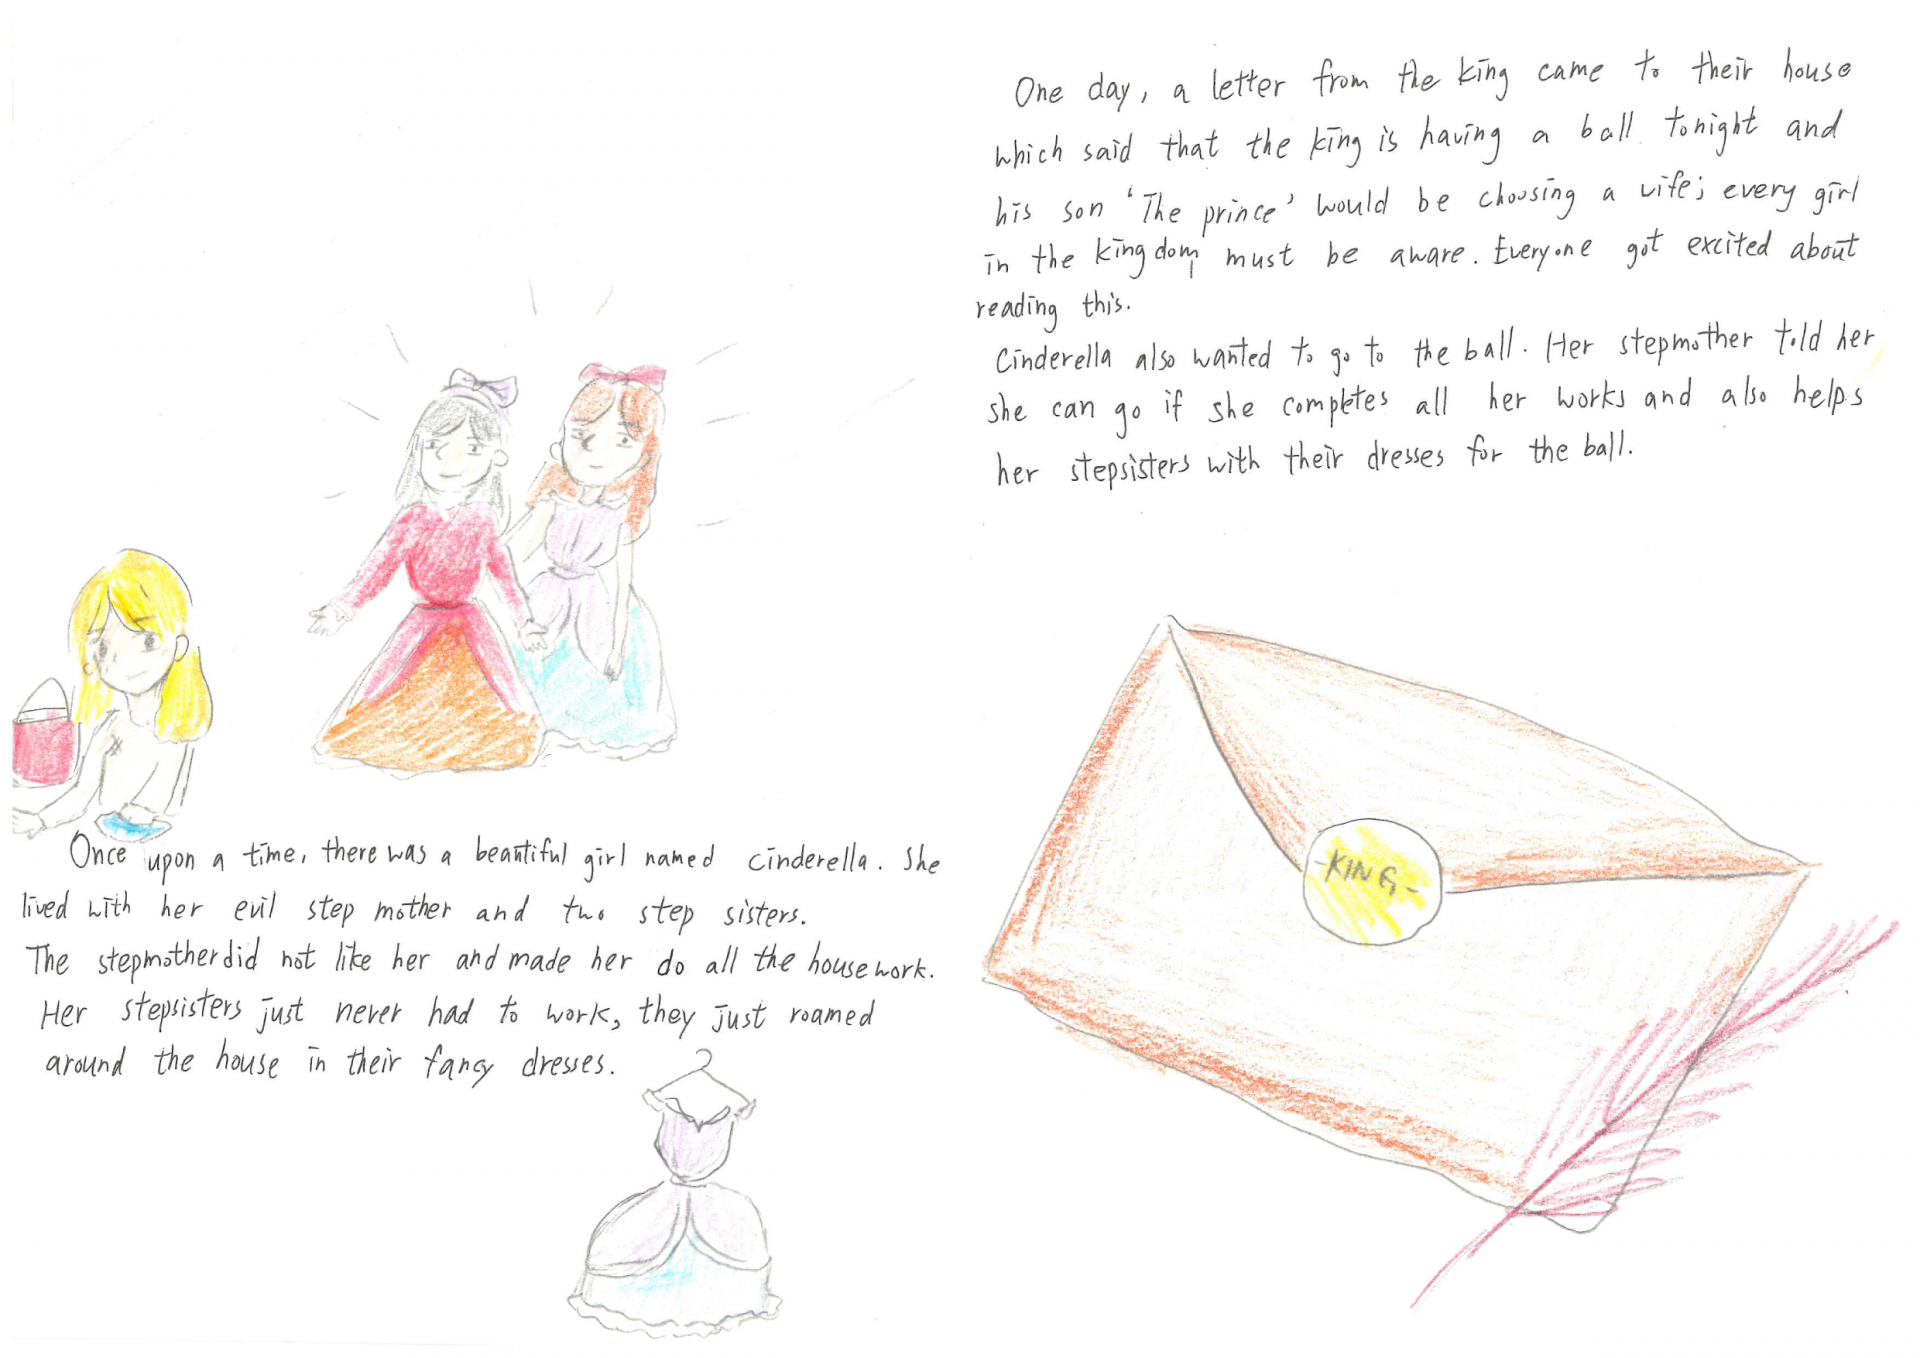 Once upon a time, there was a beautiful girl named cinderella. She
lived with her evil step mother and two step sisters.
The stepmother did not like her and made her do all the housework.
Her stepsisters just never had to work, they just roamed
around the house in their fancy dresses.
One day, a letter from the king came to their house
which said that the king is having a ball tonight and
his son 'The prince' would be choosing a wife; every girl
in the kingdom must be aware. Everyone got excited about
reading this.
Cinderella also wanted to go to the ball. Her stepmother told her
she can go if she completes all her works and also helps
her stepsisters with their dresses for the ball.
-KING-